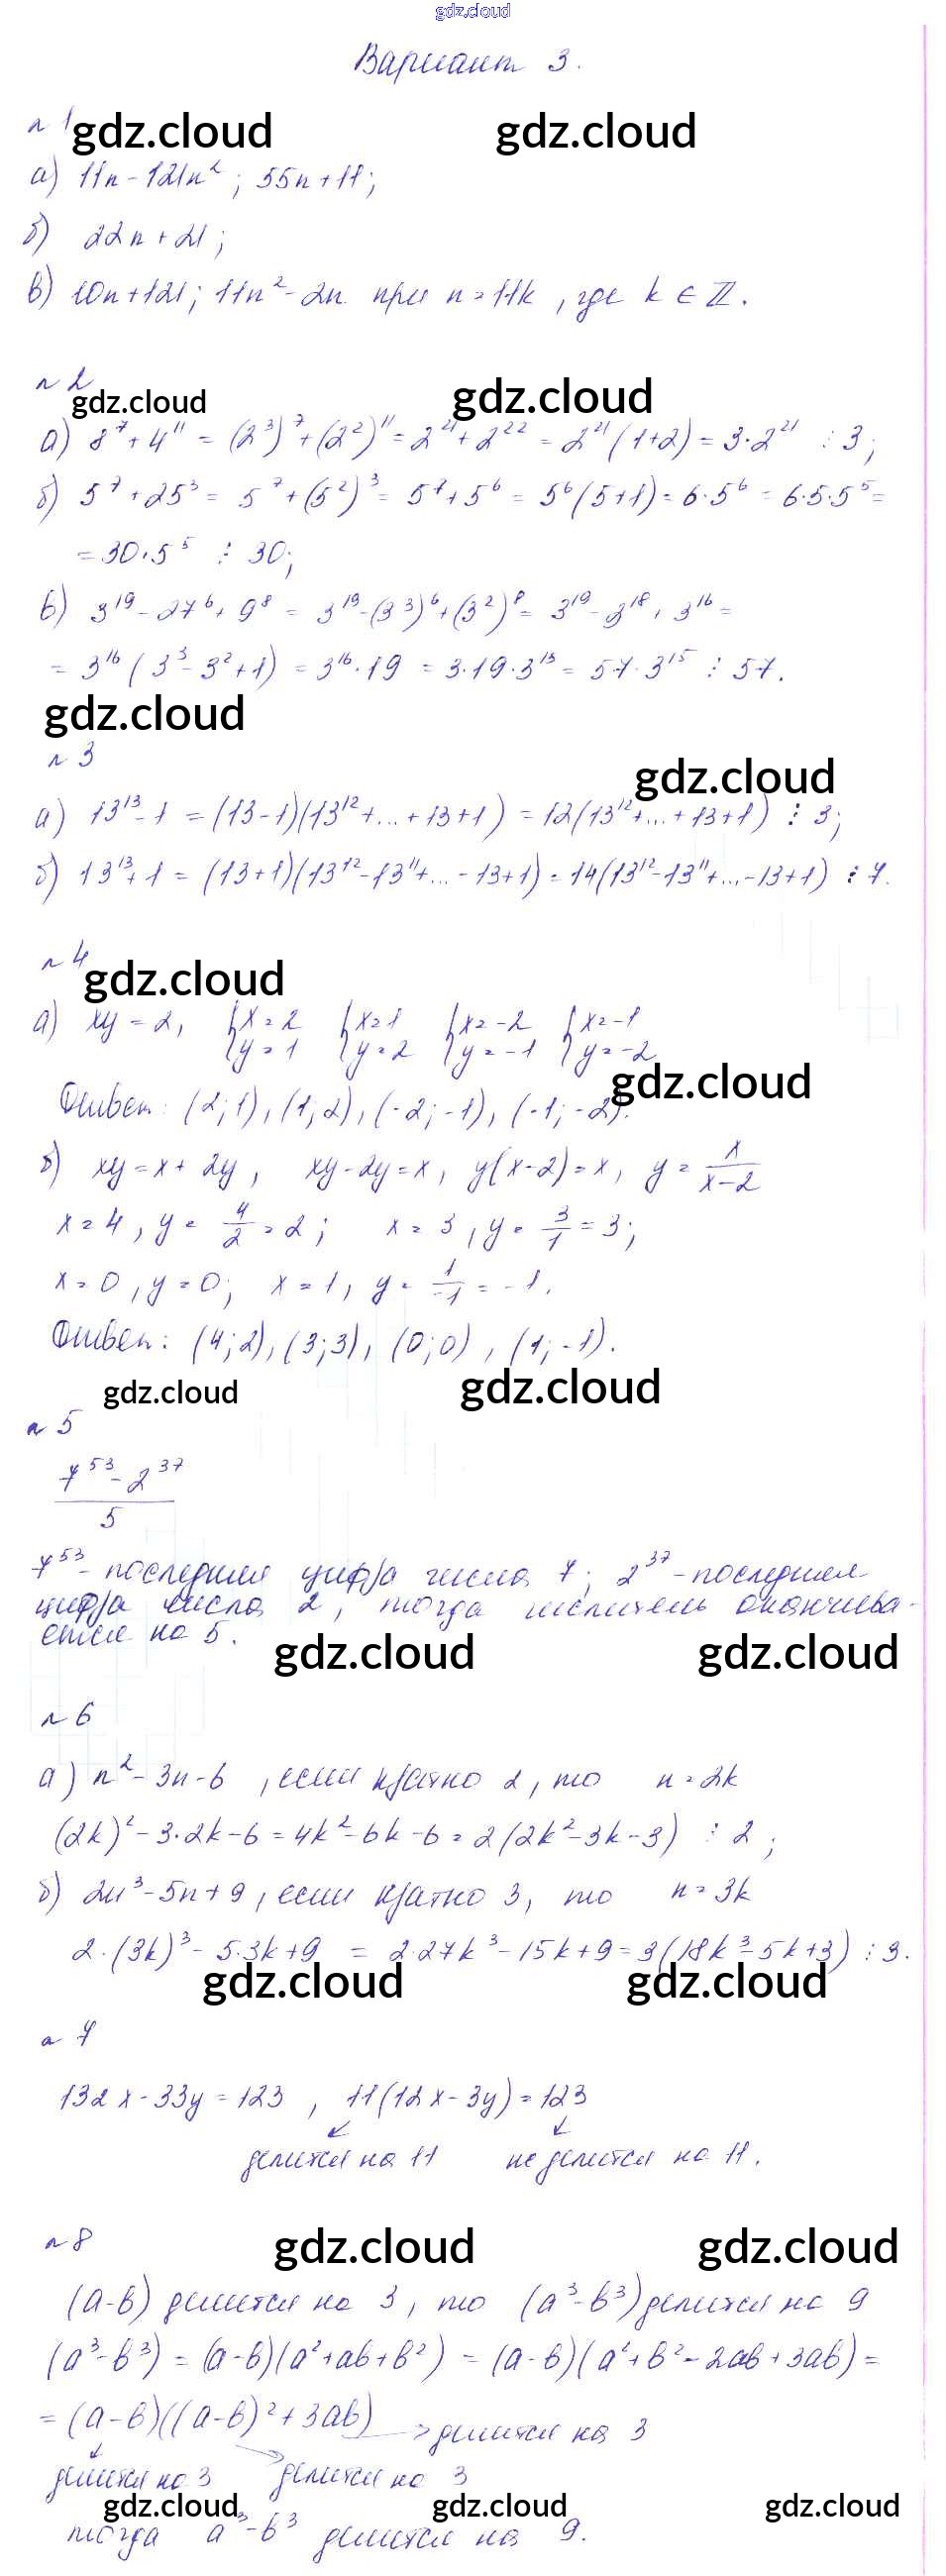 gdz.cloud
Вариант 3.
n 1 gdz.cloud gdz.cloud
а) 11n - 121n²; 55n + 11;
б) 22n + 21;
в) 10n + 121; 11n² - 2n при n = 11k, где k ∈ ℤ.
n 2
gdz.cloud gdz.cloud
а) 8⁷ + 4¹¹ = (2³)⁷ + (2²)¹¹ = 2²¹ + 2²² = 2²¹(1+2) = 3·2²¹ ⋮ 3;
б) 5⁷ + 25³ = 5⁷ + (5²)³ = 5⁷ + 5⁶ = 5⁶(5+1) = 6·5⁶ = 6·5·5⁵ =
= 30·5⁵ ⋮ 30;
в) 3¹⁹ - 27⁶ + 9⁸ = 3¹⁹ - (3³)⁶ + (3²)⁸ = 3¹⁹ - 3¹⁸ + 3¹⁶ =
= 3¹⁶(3³ - 3² + 1) = 3¹⁶·19 = 3·19·3¹⁵ = 57·3¹⁵ ⋮ 57.
gdz.cloud
n 3
gdz.cloud
а) 13¹³ - 1 = (13-1)(13¹² + ... + 13 + 1) = 12(13¹² + ... + 13 + 1) ⋮ 3;
б) 13¹³ + 1 = (13+1)(13¹² - 13¹¹ + ... - 13 + 1) = 14(13¹² - 13¹¹ + ... - 13 + 1) ⋮ 7.
n 4
gdz.cloud
а) xy = 2, {x = 2 {x = 1 {x = -2 {x = -1
y = 1 y = 2 y = -1 y = -2
gdz.cloud
Ответ: (2; 1), (1; 2), (-2; -1), (-1; -2).
б) xy = x + 2y, xy - 2y = x, y(x-2) = x, y = x/(x-2)
x = 4, y = 4/2 = 2; x = 3, y = 3/1 = 3;
x = 0, y = 0; x = 1, y = 1/-1 = -1.
Ответ: (4; 2), (3; 3), (0; 0), (1; -1).
gdz.cloud gdz.cloud
n 5
7⁵³ - 2³⁷
5
7⁵³ - последняя цифра числа 7; 2³⁷ - последняя
цифра числа 2, тогда числитель оканчива-
ется на 5.
gdz.cloud gdz.cloud
n 6
а) n² - 3n - 6, если кратно 2, то n = 2k
(2k)² - 3·2k - 6 = 4k² - 6k - 6 = 2(2k² - 3k - 3) ⋮ 2;
б) 2n³ - 5n + 9, если кратно 3, то n = 3k
2·(3k)³ - 5·3k + 9 = 2·27k³ - 15k + 9 = 3(18k³ - 5k + 3) ⋮ 3.
gdz.cloud gdz.cloud
n 7
132x - 33y = 123, 11(12x - 3y) = 123
делится на 11 не делится на 11.
n 8 gdz.cloud gdz.cloud
(a-b) делится на 3, то (a³ - b³) делится на 9
(a³ - b³) = (a-b)(a² + ab + b²) = (a-b)(a² + b² - 2ab + 3ab) =
= (a-b)((a-b)² + 3ab) делится на 3
делится на 3 делится на 3
gdz.cloud gdz.cloud gdz.cloud
тогда a³ - b³ делится на 9.